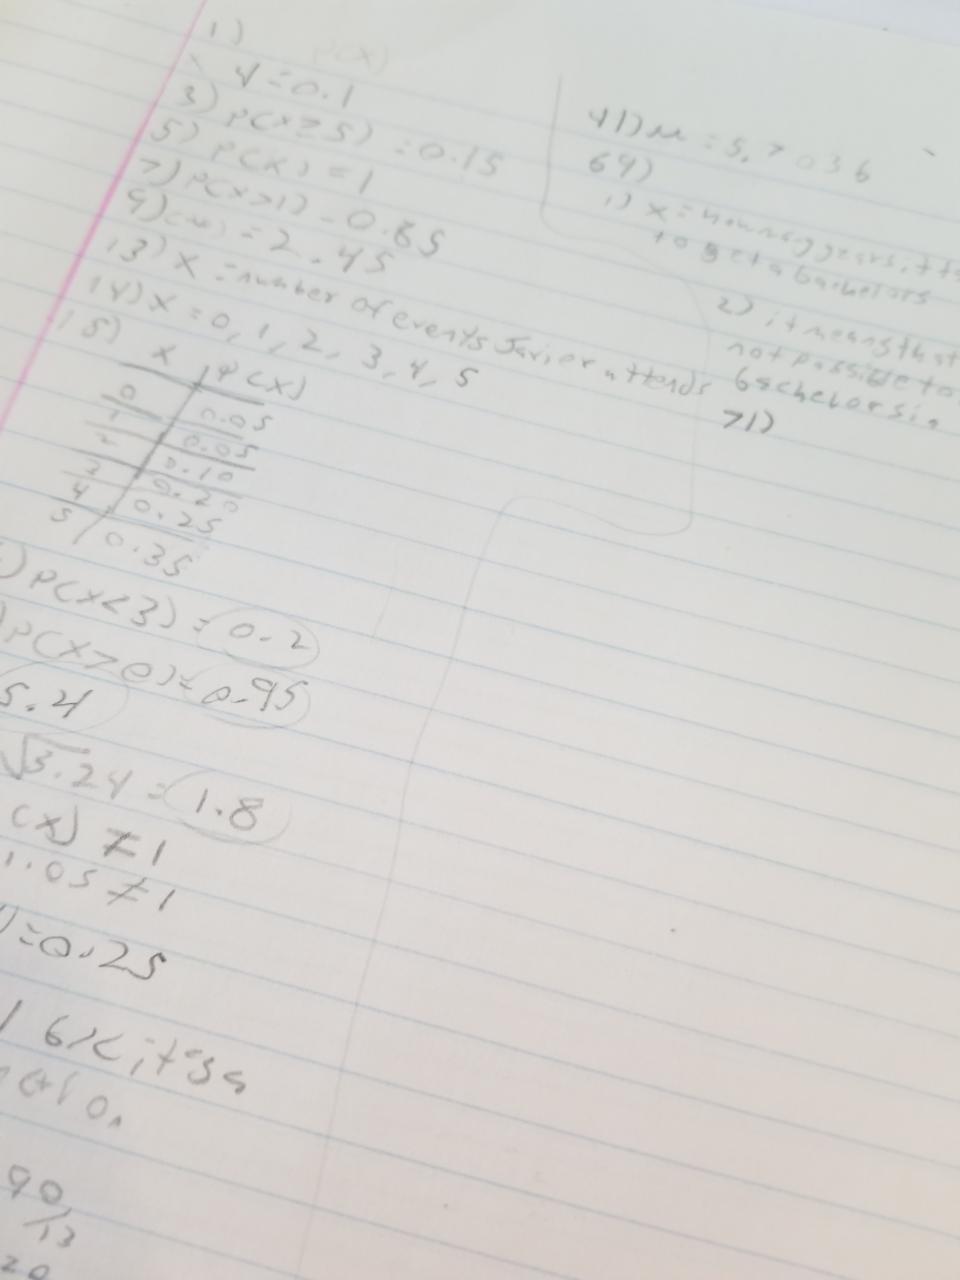 1)
4 = 0.1
3) P(x ≥ 5) = 0.15
5) P(x) = 1
7) P(x>1) = 0.85
9) (x) = 2.45
13) X = number of events Javier attends
14) X = 0, 1, 2, 3, 4, 5
15)
x P(x)
0 0.05
1 0.05
2 0.10
3 0.20
4 0.25
5 0.35
) P(x<3) = 0.2
) P(x>0) = 0.95
5.4
√3.24 = 1.8
(x) ≠ 1
1.05 ≠ 1
) = 0.25
it's a
90
/13
20
41) μ = 5.7036
69)
1) X = how many years it
to get a bachelors
2) it means that
not possible to
bachelors in
71)